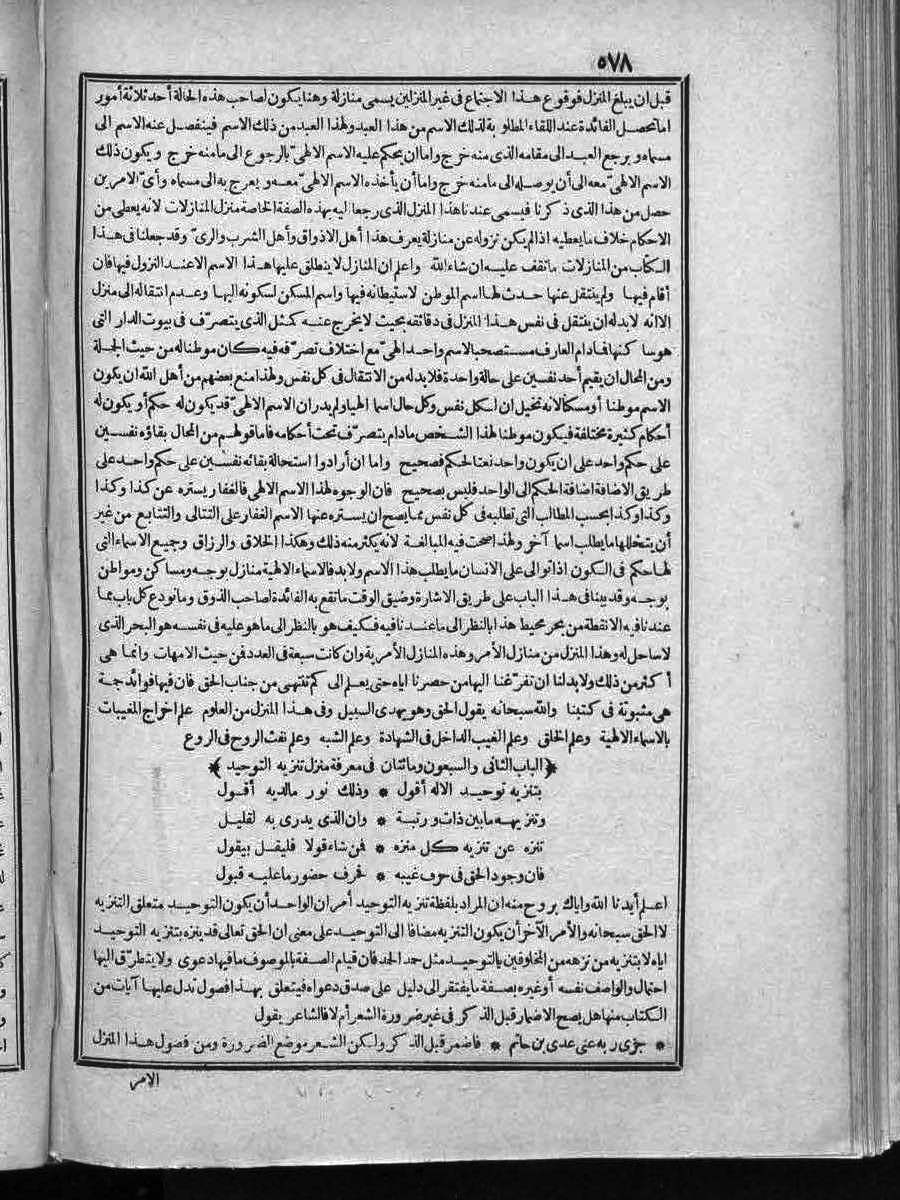 ٥٧٨
قبل ان يبلغ المنزل فوقوع هذا الاجتماع فى غير المنزلين يسمى منازلة وهنا يكون لصاحب هذه الحالة أحد ثلاثة أمور
اما تحصل الفائدة عند اللقاء المطلوبة لذلك الاسم من هذا العبد ولهذا العبد من ذلك الاسم فينفصل عنه الاسم الى
مسماه ويرجع العبد الى مقامه الذى منه خرج واما ان يحكم عليه الاسم الالهىّ بالرجوع الى ما منه خرج ويكون ذلك
الاسم الالهىّ معه الى أن يوصله الى ما منه خرج واما أن يأخذه الاسم الالهىّ معه ويعرج به الى مسماه وأىّ الامرين
حصل من هذا الذى ذكرنا فيسمى عندنا هذا المنزل الذى رجعا اليه بهذه الصفة الخاصة منزل المنازلات لانه يعطى من
الاحكام خلاف ما يعطيه اذا لم يكن نزوله عن منازلة يعرف هذا أهل الاذواق وأهل الشرب والرىّ وقد جعلنا فى هذا
الكتاب من المنازلات ما تقف عليه ان شاء الله واعلم ان المنازل لا ينطلق عليها هذا الاسم الا عند النزول فيها فان
أقام فيها ولم ينتقل عنها حدث لها اسم الموطن لاستيطانه فيها واسم المسكن لسكونه اليها وعدم انتقاله الى منزل
الا انه لا بد له ان ينتقل فى نفس هذا المنزل فى دقائقه بحيث لا يخرج عنه كمثل الذى يتصرّف فى بيوت الدار التى
هو ساكنها فمادام العارف مستصحبا لاسم واحد الهىّ مع اختلاف تصرّفه فيه كان موطنا له من حيث الجملة
ومن المحال ان يقيم أحد نفسين على حالة واحدة فلا بد له من الانتقال فى كل نفس ولهذا منع بعضهم من أهل الله ان يكون
الاسم موطنا أو مسكنا لانه تخيل ان لكل نفس وكل حال اسما الهيا ولم يدر ان الاسم الالهىّ قد يكون له حكم أو يكون له
أحكام كثيرة مختلفة فيكون موطنا لهذا الشخص مادام يتصرّف تحت أحكامه فاما قولهم من المحال بقاؤه نفسين
على حكم واحد على ان يكون واحد نعتا لحكم فصحيح واما ان أرادوا استحالة بقائه نفسين على حكم واحد على
طريق الاضافة اضافة الحكم الى الواحد فليس بصحيح فان الوجوه لهذا الاسم الالهى فالغفار يستره عن كذا وكذا
وكذا وكذا بحسب المطالب التى تطلبه فى كل نفس مما يصح ان يستره عنها الاسم الغفار على التتالى والتتابع من غير
أن يتخللها ما يطلب اسما آخر ولهذا صحت فيه المبالغة لانه يكثر منه ذلك وهكذا الخلاق والرزاق وجميع الاسماء التى
لها حكم فى الكون اذا توالى على الانسان ما يطلب هذا الاسم ولا بد فالاسماء الالهية منازل بوجه ومساكن ومواطن
بوجه وقد بينا فى هذا الباب على طريق الاشارة وضيق الوقت ما تقع به الفائدة لصاحب الذوق وما نودع كل باب مما
عندنا فيه الا نقطة من بحر محيط هذا بالنظر الى ما عندنا فيه فكيف هو بالنظر الى ما هو عليه فى نفسه هو البحر الذى
لا ساحل له وهذا المنزل من منازل الأمر وهذه المنازل الأمرية وان كانت سبعة فى العدد فمن حيث الامهات وانما هى
أكثر من ذلك ولا بد لنا ان تفرّغنا اليها من حصرنا اياه حتى يعلم الى كم تنتهى من جناب الحق فان فيها فوائد جمة
هى مبثوثة فى كتبنا والله سبحانه يقول الحق وهو يهدى السبيل وفى هذا المنزل من العلوم علم اخراج المغيبات
بالاسماء الالهية وعلم الخلق وعلم الغيب الداخل فى الشهادة وعلم الشبه وعلم نفث الروح فى الروع
﴿الباب الثانى والسبعون ومائتان فى معرفة منزل تنزيه التوحيد﴾
بتنزيه توحيد الاله أقول * وذلك نور ما لديه أفول
وتنزيهه ما بين ذات ورتبة * وان الذى يدرى به لقليل
تنزه عن تنزيه كل منزه * فمن شاء قولا فليقل بيقول
فان وجود الحق فى حرف غيبه * فحرف حضور ما عليه قبول
اعلم أيدنا الله واياك بروح منه ان المراد بلفظة تنزيه التوحيد أمران الواحد أن يكون التوحيد متعلق التنزيه
لا الحق سبحانه والأمر الآخر أن يكون التنزيه مضافا الى التوحيد على معنى ان الحق تعالى قد ينزه بتنزيه التوحيد
اياه لا بتنزيه من نزهه من المخلوقين بالتوحيد مثل حمد الحمد فان قيام الصفة بالموصوف ما فيها دعوى ولا يتطرّق اليها
احتمال والواصف نفسه أو غيره بصفة ما يفتقر الى دليل على صدق دعواه فيتعلق بهذا فصول تدل عليها آيات من
الكتاب منها هل يصح الاضمار قبل الذكر فى غير ضرورة الشعر أم لا فالشاعر يقول
* جزى ربه عنى عدى بن حاتم * فاضمر قبل الذكر ولكن الشعر موضع الضرورة ومن فصول هذا المنزل
الامر